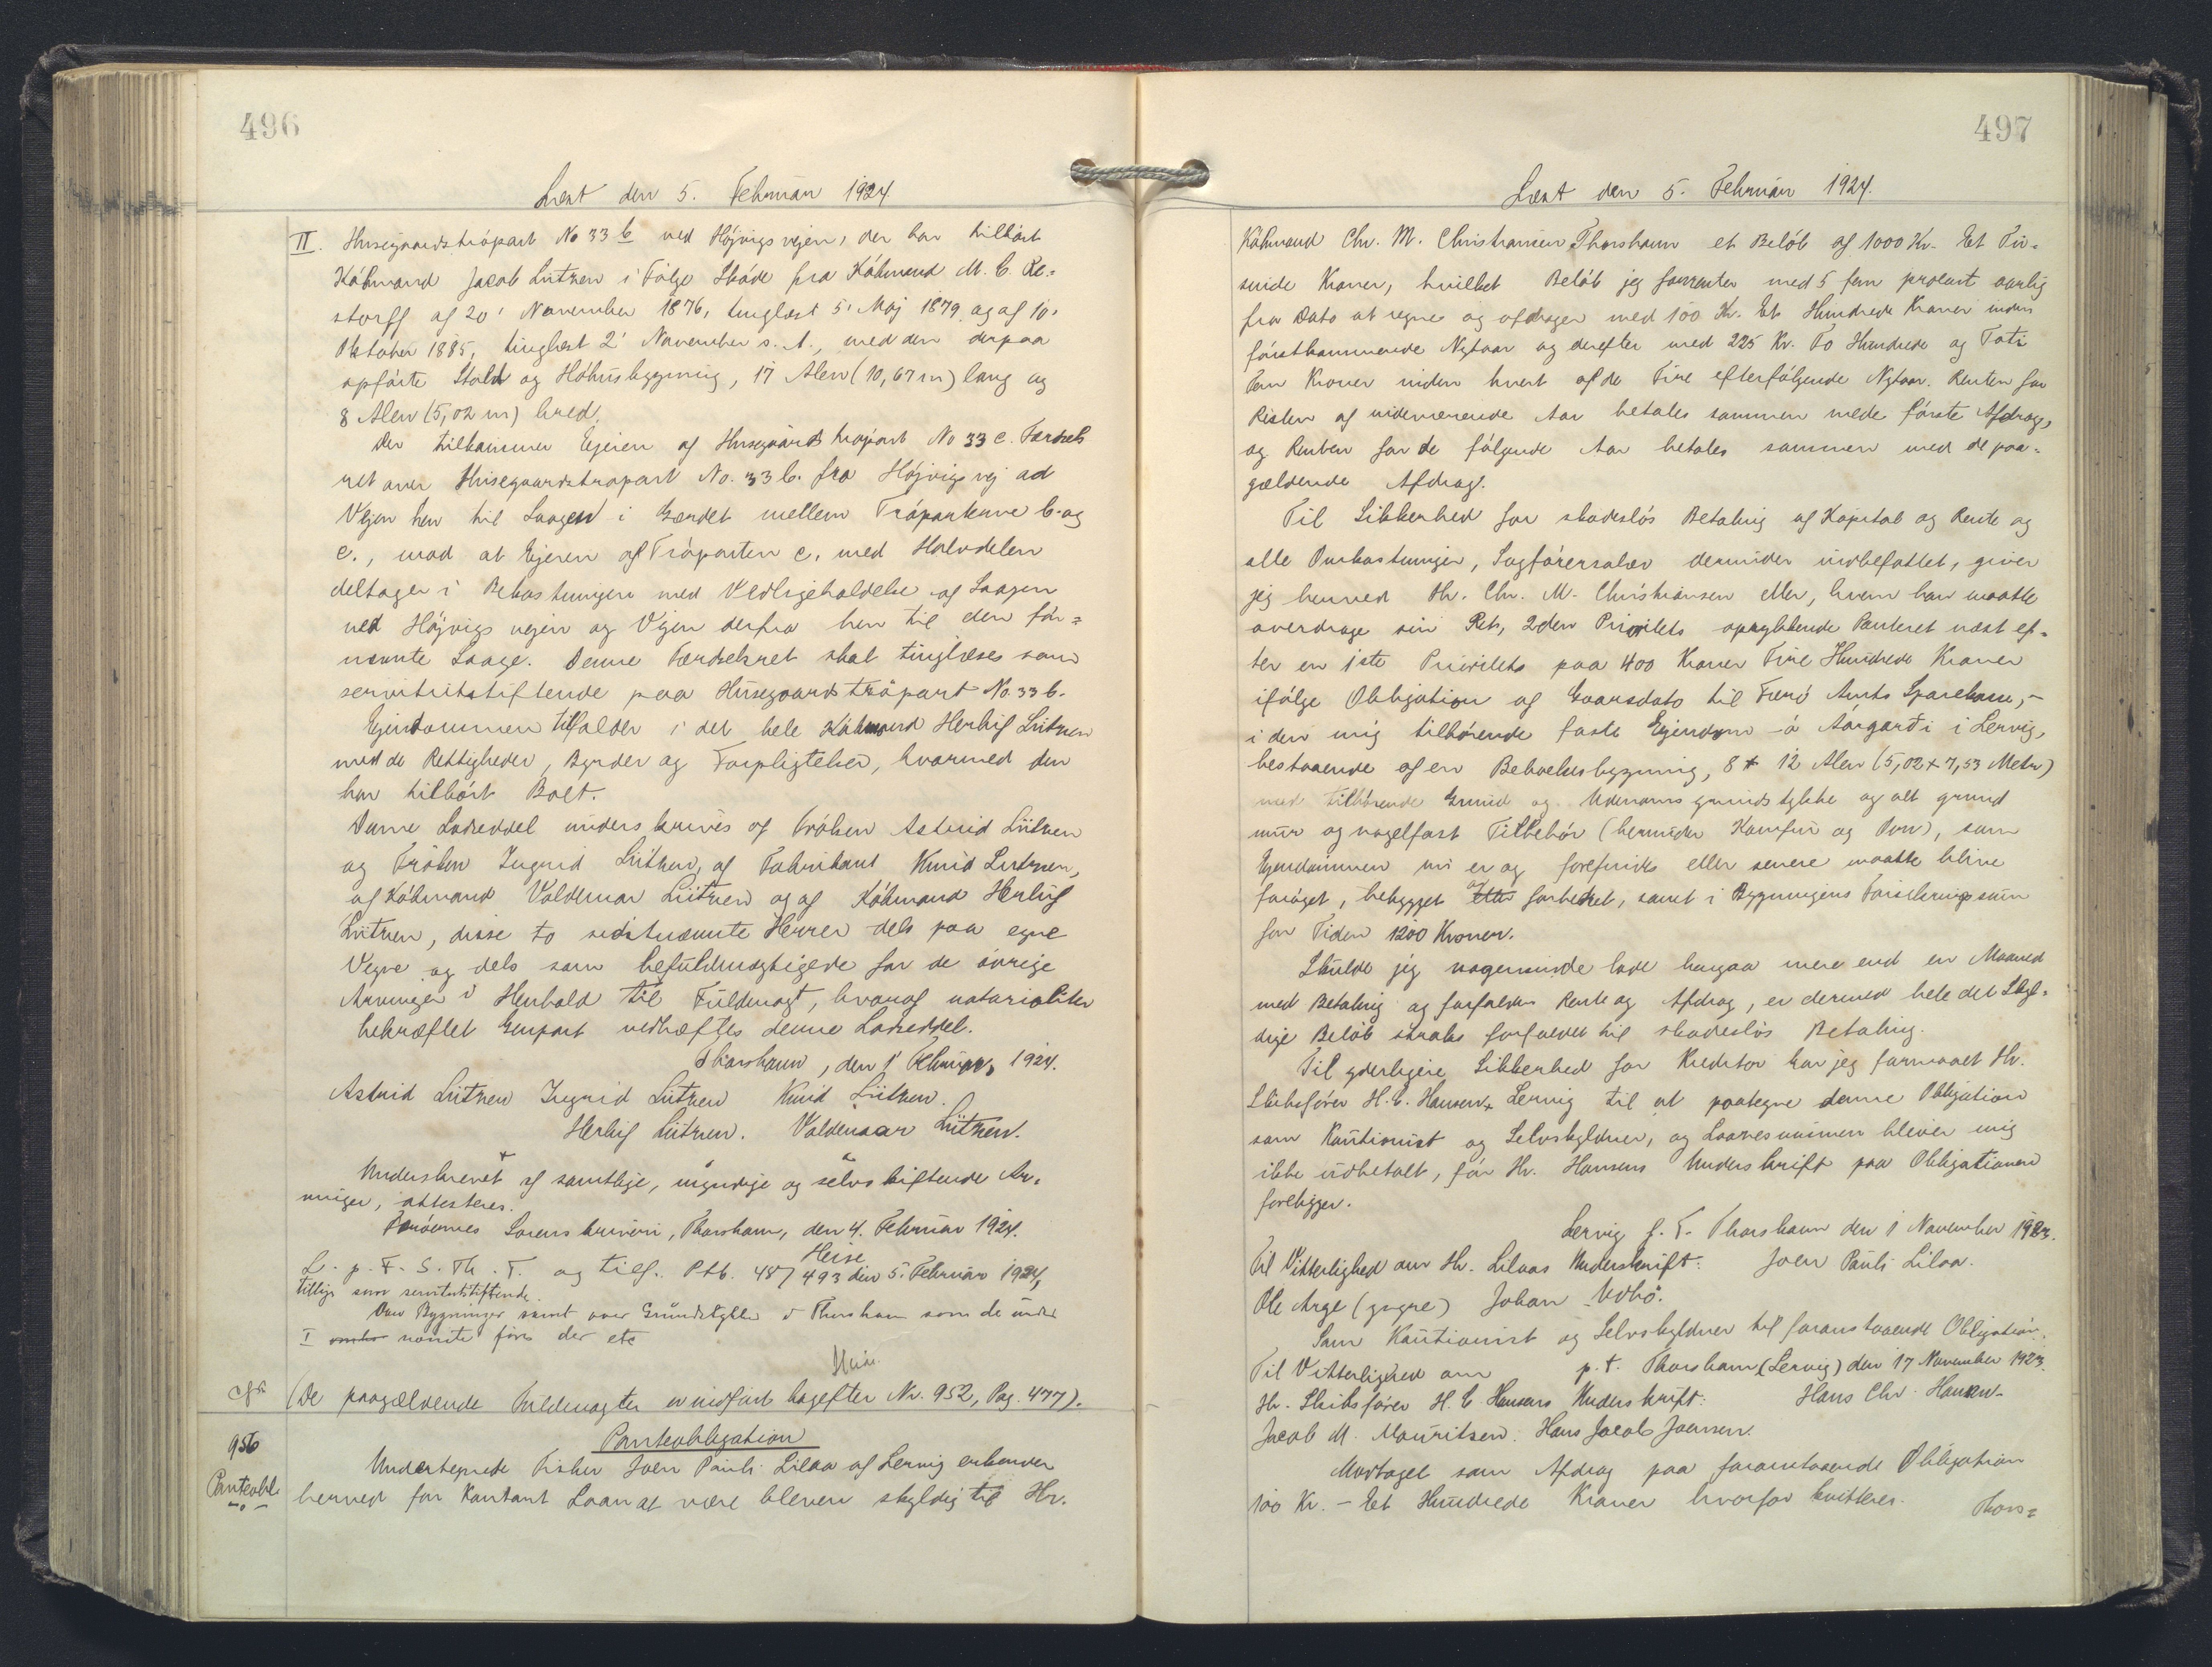 496
Læst den 5. Februar 1924.
II. Husegaardströpart No 33 b ved Höjvigsvejen, der har tilhört
Köbmand Jacob Lützen i Fölge Sköde fra Köbmand M. C. Re=
storff af 20' November 1876, tinglæst 5' Maj 1879 og af 10'
Oktober 1885, tinglæst 2' November s. A., med den derpaa
opförte Stald og Höhusbygning, 17 Alen (10,67 m) lang og
8 Alen (5,02 m) bred.
Der tilkommer Ejeren af Husegaardströpart No 33 c. Færdsels
ret over Husegaardströpart No. 33 b. fra Höjvigsvej ad
Vejen hen til Laagen i Gærdet mellem Tröparterne b. og
c., mod at Ejeren af Tröparten c. med Halvdelen
deltager i Bekostningen med Vedligeholdelse af Laagen
ved Höjvigsvejen og Vejen derfra hen til den för=
nævnte Laage. Denne Færdselsret skal tinglæses som
servitutstiftende paa Husegaardströpart No. 33 b.
Ejendommen tilfalder i det hele Köbmand Herluf Lützen
med de Rettigheder, Byrder og Forpligtelser, hvormed den
har tilhört Boet.
Denne Lodseddel underskrives af Fröken Astrid Lützen
og Fröken Ingrid Lützen, af Fabrikant Knud Lützen,
af Köbmand Valdemar Lützen og af Köbmand Herluf
Lützen, disse to sidstnævnte Herrer dels paa egne
Vegne og dels som befuldmægtigede for de övrige
Arvinger i Henhold til Fuldmagt, hvoraf notarialiter
bekræftet Genpart vedhæftes denne Lodseddel.
Thorshavn, den 1' Februar 1924.
Astrid Lützen Ingrid Lützen Knud Lützen.
Herluf Lützen. Valdemar Lützen.
Underskrevet af samtlige, myndige og selvskiftende Ar=
vinger, attesteres.
Færöernes Sorenskriveri, Thorshavn, den 4. Februar 1924.
Heise
L. p. F. S. Th. T. og tilf. Ptb. 487/493 den 5. Februar 1924,
tillige som servitutstiftende.
Bygninger samt over Grundstykker i Thorshavn som de under
I nævnte föres der etc
Heise
(De paagældende Fuldmagter er indfört bagefter Nr. 952, Pag. 477).
956
Panteobl.
Panteobligation
Undertegnede Fisker Joen Pauli Lilaa af Lervig erkender
herved for Kontant Laan at være bleven skyldig til Hr.
497
Læst den 5. Februar 1924.
Köbmand Chr. M. Christiansen Thorshavn et Belöb af 1000 Kr. Et Tu=
sinde Kroner, hvilket Belöb jeg forrenter med 5 fem procent aarlig
fra Dato at regne og afdrager med 100 Kr. Et Hundrede Kroner inden
förstkommende Nytaar og derefter med 225 Kr. To Hundrede og Tyve
Fem Kroner inden hvert af de Fire efterfölgende Nytaar. Renten for
Resten af indeværende Aar betales sammen med förste Afdrag,
og Renten for de fölgende Aar betales sammen med de paa=
gældende Afdrag.
Til Sikkerhed for skadeslös Betaling af Kapital og Rente og
alle Omkostninger, Sagförersalær derunder indbefattet, giver
jeg herved Hr. Chr. M. Christiansen eller, hvem han maatte
overdrage sin Ret, 2den Prioritets oprykkende Panteret næst ef=
ter en 1ste Prioritets paa 400 Kroner Fire Hundrede Kroner
ifölge Obligation af Gaarsdato til Færö Amts Sparekasse, -
i den mig tilhörende faste Ejendom - á Áargarði i Lervig,
bestaaende af en Beboelsesbygning, 8 + 12 Alen (5,02 + 7,53 Meter)
med tilhörende Grund og Udenomsgrundstykke og alt grund
mur og nagelfast Tilbehör (herunder Komfur og Ovn), som
Ejendommen nu er og forefindes eller senere maatte blive
foröget, bebygget og forbedret, samt i Bygningens Forsikringssum
for Tiden 1200 Kroner.
Skulde jeg nogensinde lade hengaa mere end en Maaned
med Betaling af forfalden Rente og Afdrag, er dermed hele det Skyl=
dige Belöb straks forfalden til skadeslös Betaling.
Til yderligere Sikkerhed for Kreditor har jeg formaaet Hr.
Skibsförer H. C. Hansen, Lervig til at paategne denne Obligation
som Kautionist og Selvskyldner, og Laanesummen bliver mig
ikke udbetalt, för Hr. Hansens Underskrift paa Obligationen
foreligger.
Lervig p. T. Thorshavn den 1 November 1923.
Til Vitterlighed om Hr. Lilaas Underskrift: Joen Pauli Lilaa.
Ole Arge (yngre) Johan
Som Kautionist og Selvskyldner til foranstaaende Obligation.
Til Vitterlighed om p. t. Thorshavn (Lervig) den 17 November 1923.
Hr. Skibsförer H. C Hansens Underskrift: Hans Chr. Hansen
Jacob M. Mouritsen. Hans Jacob Joensen.
Modtaget som Afdrag paa foranstaaende Obligation
100 Kr. - Et Hundrede Kroner hvorfor kvitteres. Thors=